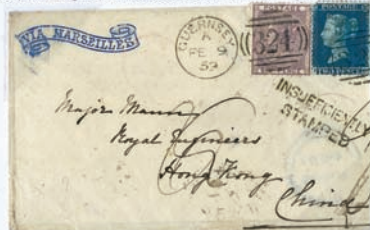 VIA MARSEILLES
GUERNSEY
A
FE 9
59
324
POSTAGE
INSUFFICIENTLY
STAMPED
Major Mann
Royal Engineers
Hong Kong
China